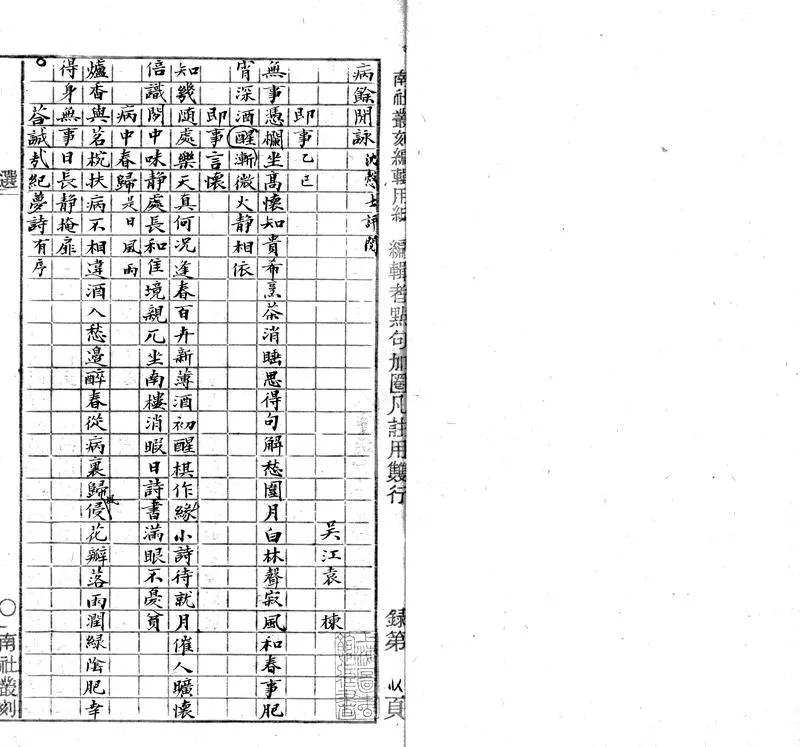 南社叢刻編輯用紙 編輯者點句加圈凡註用雙行 錄第 頁
病餘閒詠 沈懋士評閱
吳江袁 棟
即事乙巳
無事憑欄坐高懷知貴希烹茶消睡思得句解愁圍月白林聲寂風和春事肥
宵深酒醒漸微火靜相依
即事言懷
知幾随處樂天真何況逢春百卉新薄酒初醒棋作緣小詩待就月催人曠懷
倍識閒中味靜處長和佳境親兀坐南樓消暇日詩書滿眼不憂貧
病中春歸是日風雨
爐香與茗椀扶病不相違酒入愁邊醉春從病裏歸風侵花瓣落雨潤綠陰肥幸
得身無事日長靜掩扉
荅誠哉紀夢詩有序
選
南社叢刻